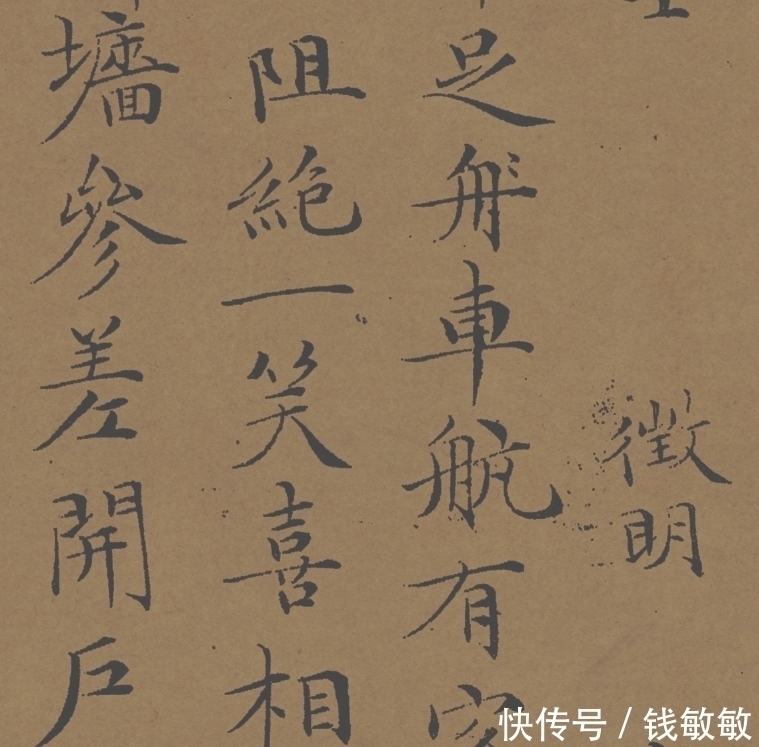 徵明
足舟車航有
阻絶一笑喜相
墻參差開戶
快传号 / 钱敏敏